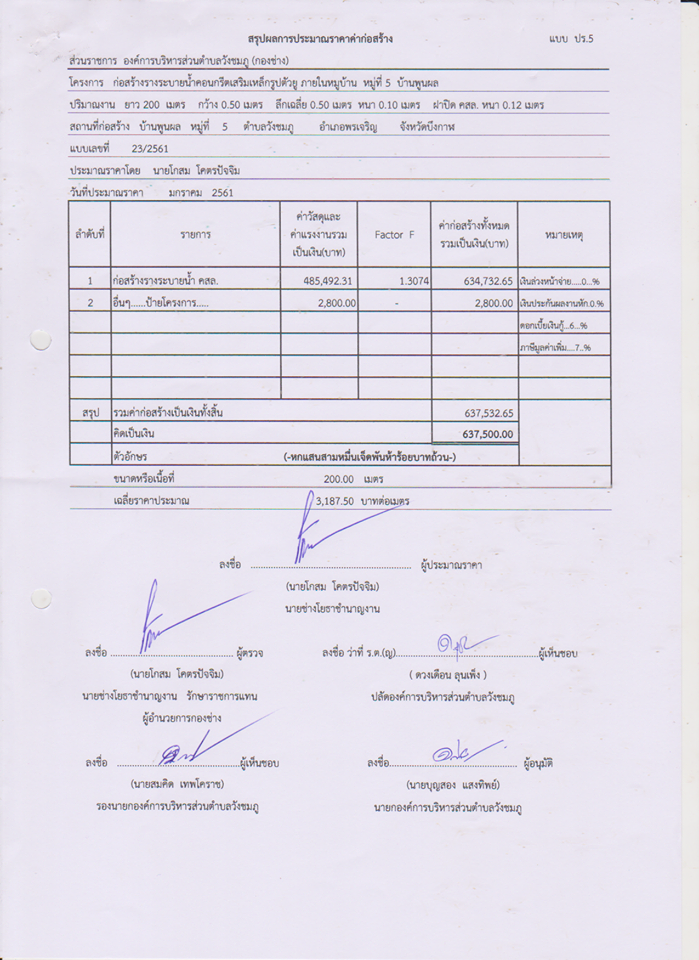 สรุปผลการประมาณราคาค่าก่อสร้าง แบบ ปร.5
ส่วนราชการ องค์การบริหารส่วนตำบลวังชมภู (กองช่าง)
โครงการ ก่อสร้างรางระบายน้ำคอนกรีตเสริมเหล็กรูปตัวยู ภายในหมู่บ้าน หมู่ที่ 5 บ้านพูนผล
ปริมาณงาน ยาว 200 เมตร กว้าง 0.50 เมตร ลึกเฉลี่ย 0.50 เมตร หนา 0.10 เมตร ฝาปิด คสล. หนา 0.12 เมตร
สถานที่ก่อสร้าง บ้านพูนผล หมู่ที่ 5 ตำบลวังชมภู อำเภอพรเจริญ จังหวัดบึงกาฬ
แบบเลขที่ 23/2561
ประมาณราคาโดย นายโกสม โคตรปัจจิม
วันที่ประมาณราคา มกราคม 2561
ลำดับที่ รายการ ค่าวัสดุและค่าแรงงานรวมเป็นเงิน(บาท) Factor F ค่าก่อสร้างทั้งหมดรวมเป็นเงิน(บาท) หมายเหตุ
1 ก่อสร้างรางระบายน้ำ คสล. 485,492.31 1.3074 634,732.65 เงินล่วงหน้าจ่าย.....0...%
2 อื่นๆ......ป้ายโครงการ..... 2,800.00 - 2,800.00 เงินประกันผลงานหัก.0.%
ดอกเบี้ยเงินกู้...6...%
ภาษีมูลค่าเพิ่ม....7..%
สรุป รวมค่าก่อสร้างเป็นเงินทั้งสิ้น 637,532.65
คิดเป็นเงิน 637,500.00
ตัวอักษร (-หกแสนสามหมื่นเจ็ดพันห้าร้อยบาทถ้วน-)
ขนาดหรือเนื้อที่ 200.00 เมตร
เฉลี่ยราคาประมาณ 3,187.50 บาทต่อเมตร
ลงชื่อ ผู้ประมาณราคา
(นายโกสม โคตรปัจจิม)
นายช่างโยธาชำนาญงาน
ลงชื่อ ผู้ตรวจ ลงชื่อ ว่าที่ ร.ต.(ญ) ผู้เห็นชอบ
(นายโกสม โคตรปัจจิม) ( ดวงเดือน ลุนเพ็ง )
นายช่างโยธาชำนาญงาน รักษาราชการแทน ปลัดองค์การบริหารส่วนตำบลวังชมภู
ผู้อำนวยการกองช่าง
ลงชื่อ ผู้เห็นชอบ ลงชื่อ ผู้อนุมัติ
(นายสมคิด เทพโคราช) (นายบุญสอง แสงทิพย์)
รองนายกองค์การบริหารส่วนตำบลวังชมภู นายกองค์การบริหารส่วนตำบลวังชมภู